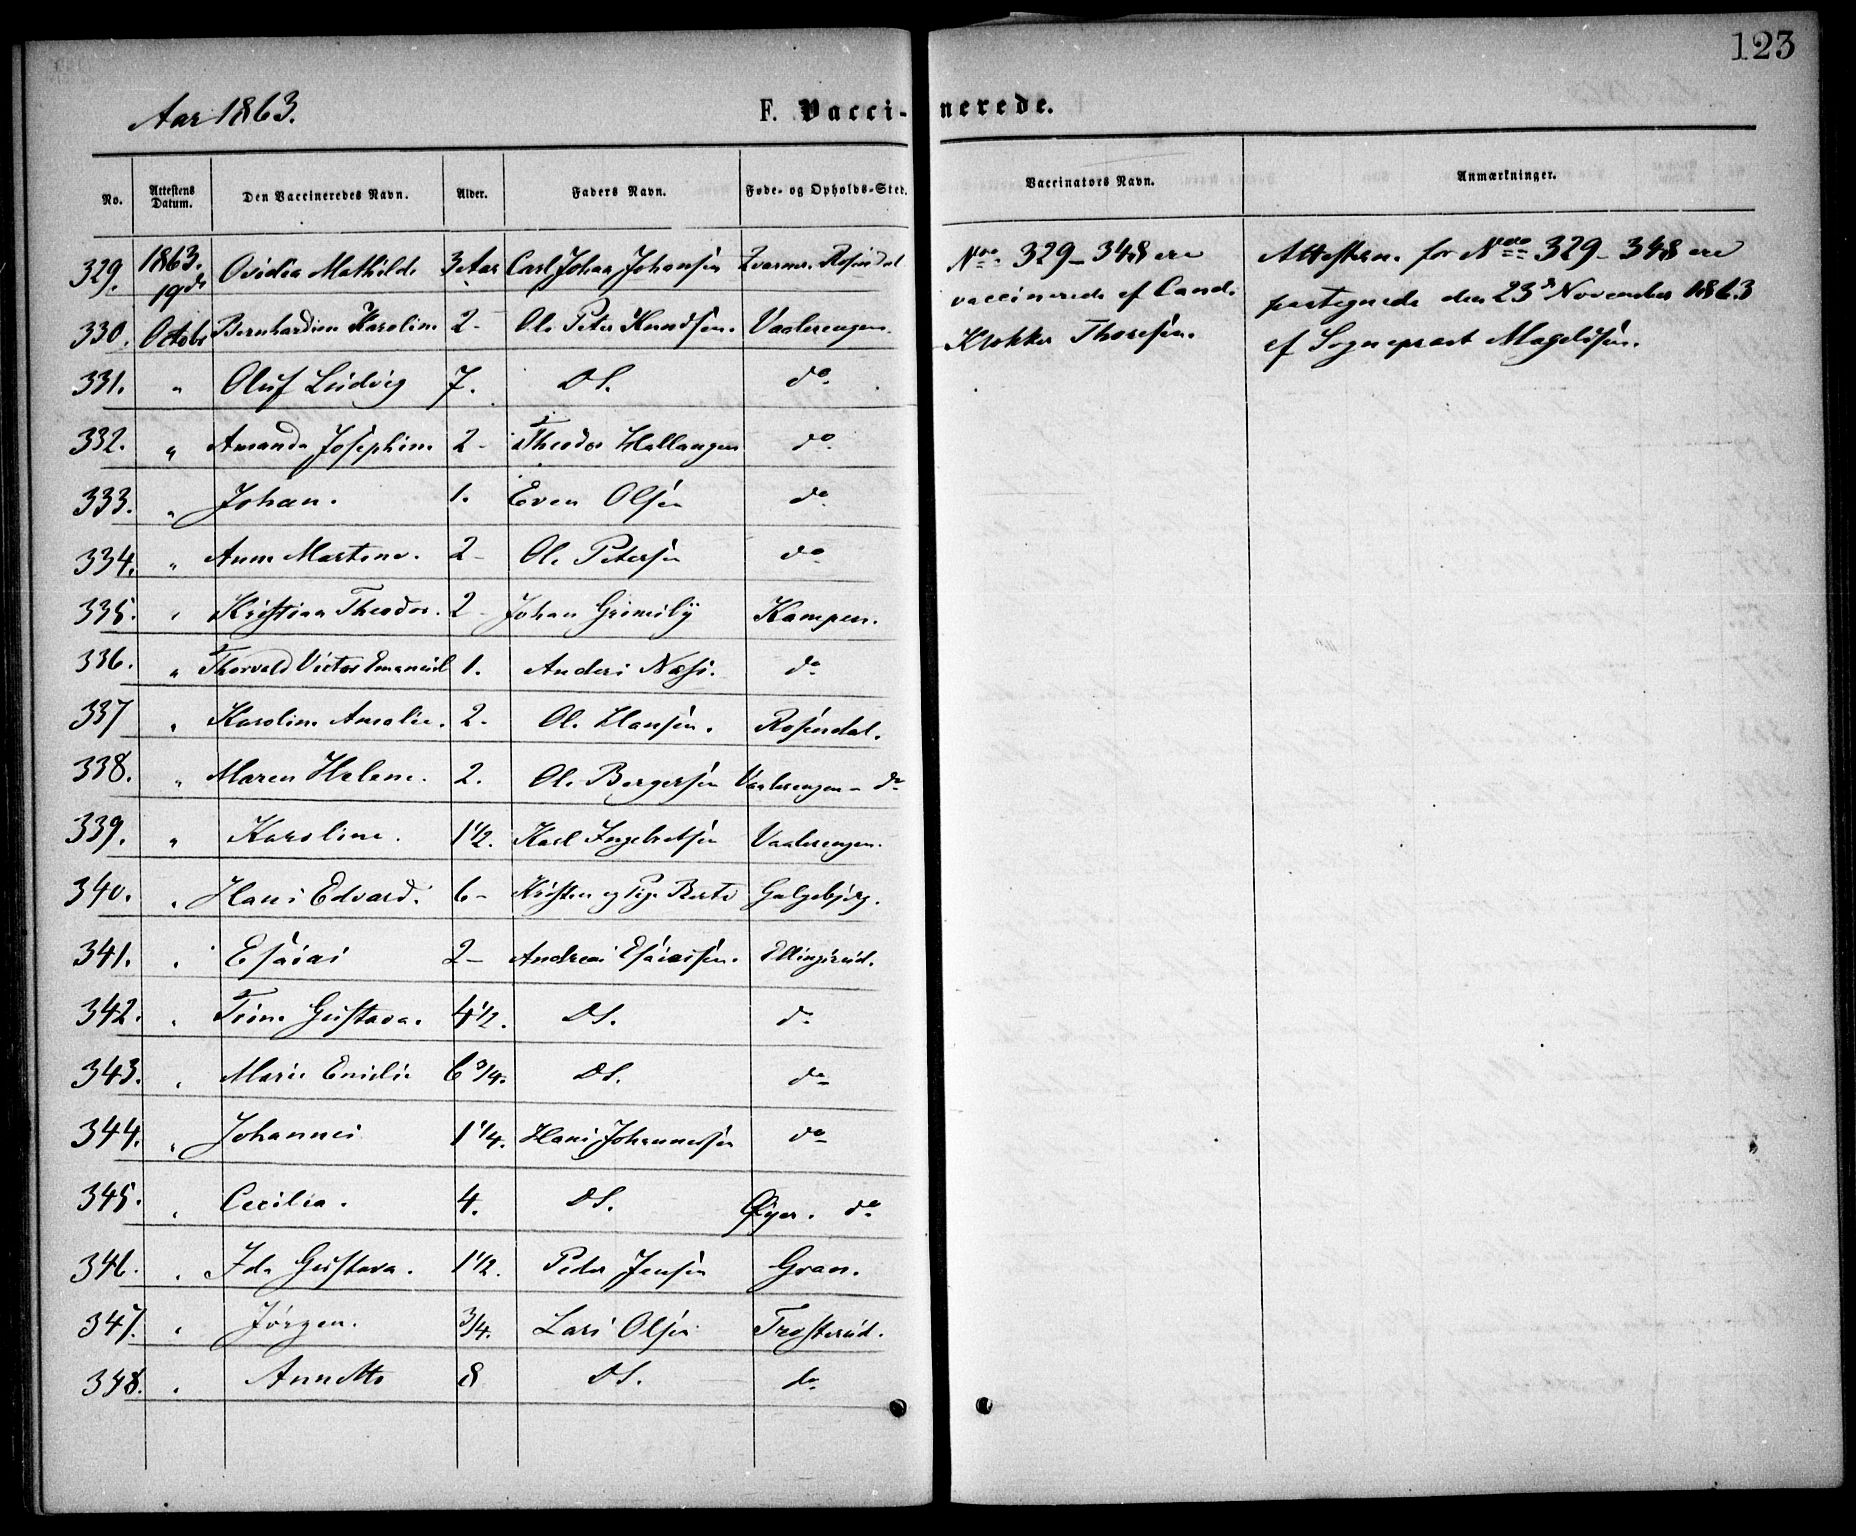 123
Aar 1863.
F. Vaccinerede.
No. Attestens Datum. Den Vaccineredes Navn. Alder. Faders Navn. Føde- og Opholds-Sted. Vaccinators Navn. Anmærkninger.
329. 1863. 19de Ovidia Mathilde 3 Aar Carl Johan Johansen Rosendal
330. Octobr Bernhardine Karoline 2- Ole Peter Knudsen. Vaalerengen.
331. " Oluf Ludvig 7. DS. do
332. " Amanda Josephine 2- Theodor Hallangen do
333. " Johan. 1. Even Olsen do
334. " Anne Martine. 2- Ole Petersen do
335. " Kristian Theodor. 2- Johan Grimsby Kampen.
336. " Thorvald Victor Emanuel 1. Anders Næss. do
337 " Karoline Amalie. 2- Ole Hansen. Rosendal.
338. " Maren Helene. 2. Ole Bergersen Vaalerengen - do
339. " Karoline. 1 1/2. Karl Ingebretsen Vaalerengen.
340. " Hans Edvard. 6- Kristen og Pige Berte Galgebjerg.
341. " Esaias 2- Andreas Esaiassen. Ellingsrud.
342. " Trine Gustava. 4 1/2. DS. do
343. " Marie Emilie 6 3/4. DS. do
344. " Johannes 1 1/4. Hans Johannessen do
345. " Cecilia. 4. DS. Øyer. do
346. " Ida Gustava. 1 1/2. Peder Jensen Gran.
347. " Jørgen. 3/4. Lars Olsen Trosterud.
348. " Annette 8 DS. do
Noo 329-348 ere
vaccinerede af Cand.
Klokker Thoresen.
Attesterne for Noo 329-348 ere
paategnede den 23de November 1863
af Sognepræst Magelssen.